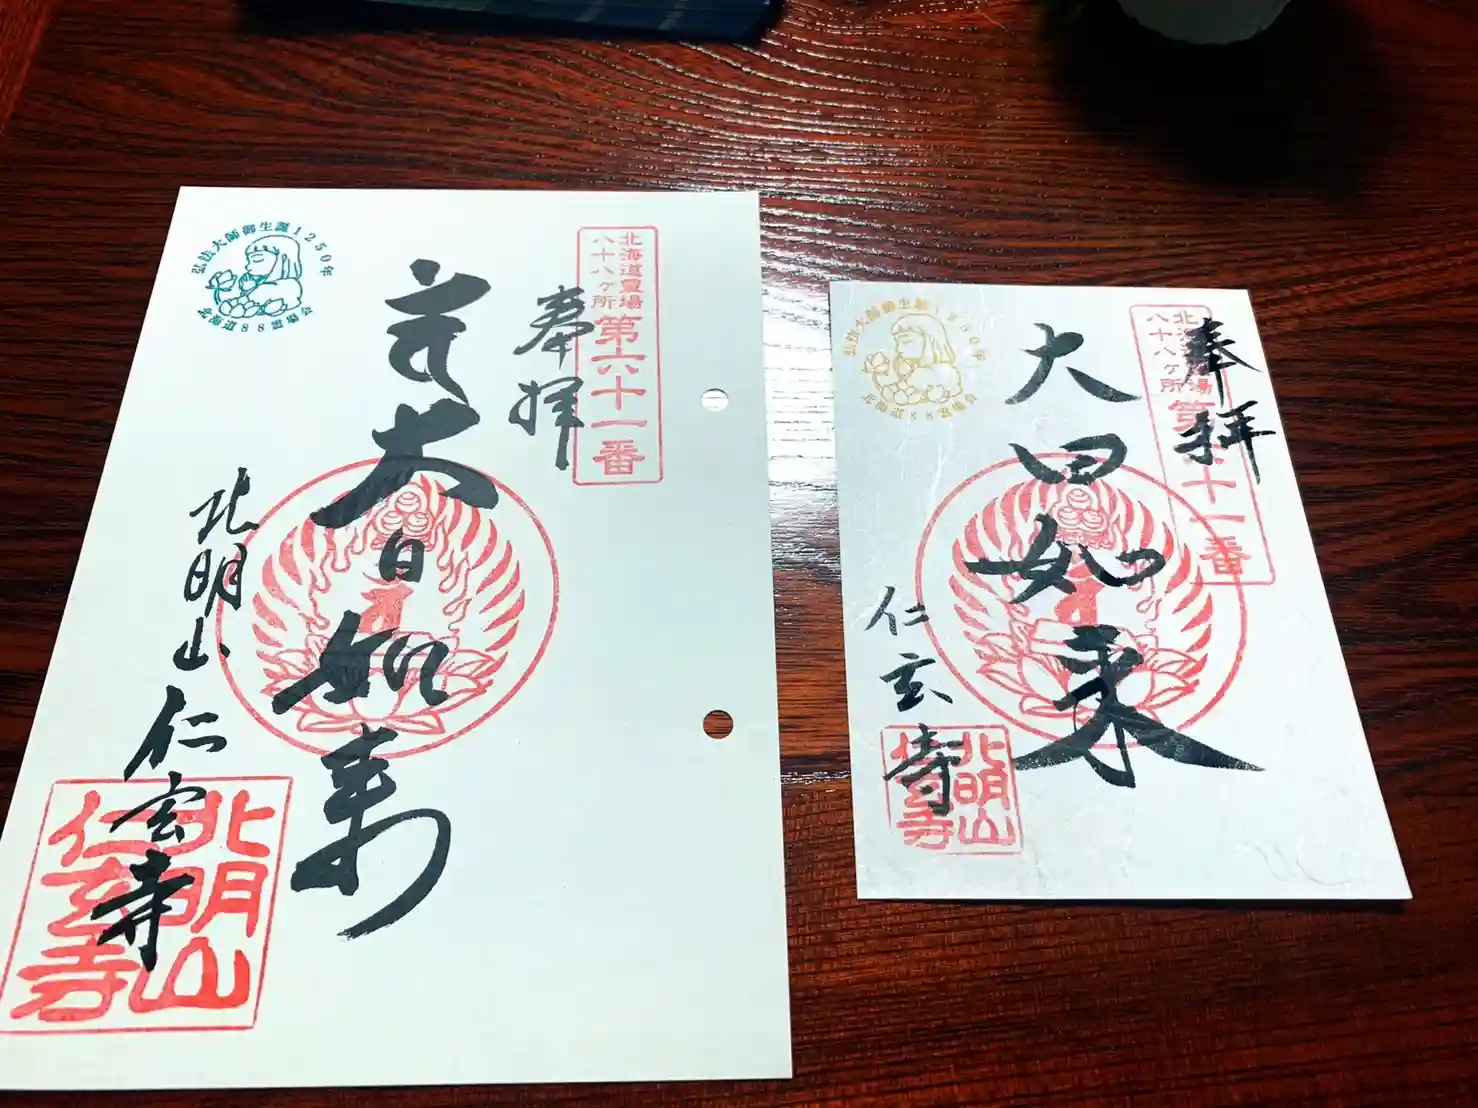 北海道霊場
八十八ヶ所
第六十一番
奉拝
大日如来
北明山
仁玄寺
北明山
仁玄寺
弘法大師御生誕1250年
北海道88霊場会
北海
場
八十八ヶ所
第
十一番
奉拝
大日如来
仁玄寺
北明山
弘法大師御生誕1250年
北海道88霊場会